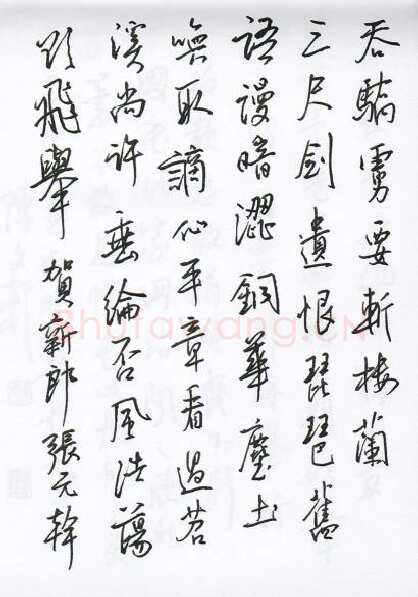 吞驕虜要斬樓蘭
三尺劍遺恨琵琶舊
語謾暗澀銅華塵土
喚取謫仙平章看過苕
溪尚許垂綸否風浩蕩
欲飛舉 賀新郎 張元幹
Shufawang.CN